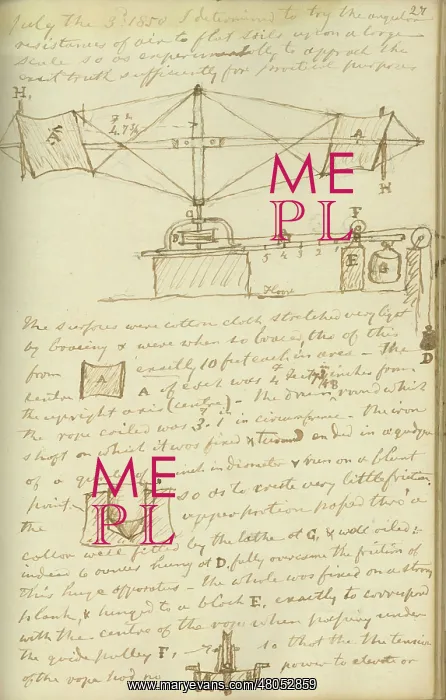 27
July the 3rd 1850 I determined to try the angular
resistances of air to flat sails upon a large
scale so as experimentally to approach the
exact truth sufficiently for practical purposes
H,
7 in
4.7¾
A
A
H
ME
PL
B
G
F
5 4 3 2 1
E
G
Floor
D
The surfaces were cotton cloth stretched very light
by bracing & were when so braced, tho of this
form A exactly 10 feet each in area – The
centre A of each was 4 feet inches from
the upright axis (centre) – The drum, round which
the rope coiled was 3.1 in circumference – The iron
shaft on which it was fixed & turned ended in a
of a inch in diameter & run on a
point so as to create very little friction
ME
PL
the upper portion passed thro' a
collar well fitted by the lathe at G, & well oiled &
indeed to ounces hung at D, fully overcame the friction of
this huge apparatus – The whole was fixed on a strong
plank, & hinged to a block E, exactly to correspond
with the centre of the rope when passing under
the guide pulley F, so that the tension
of the rope had no power to elevate or
www.maryevans.com/48052859